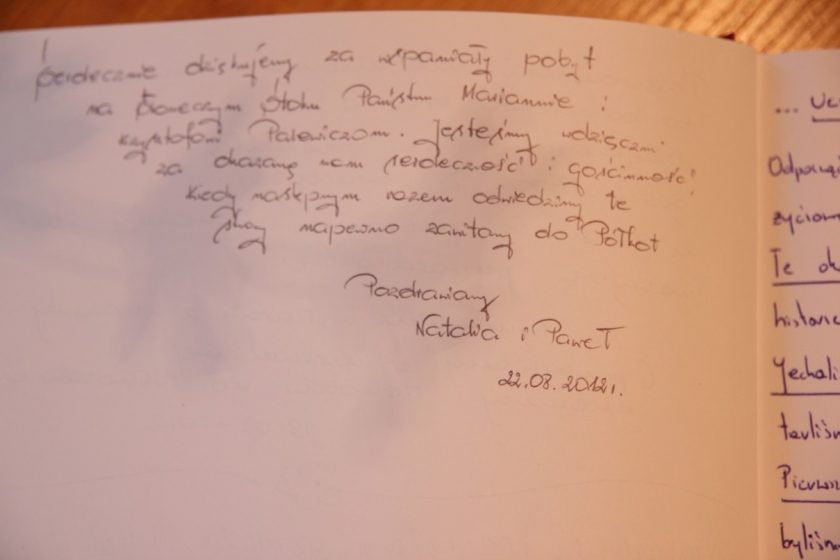 Serdecznie dziękujemy za wspaniały pobyt
na Słonecznym Stoku Państwu Mariannie i
Krzysztofowi Palewiczom. Jesteśmy wdzięczni
za okazaną nam serdeczność i gościnność!
Kiedy następnym razem odwiedzimy te
strony napewno zawitamy do Półkot
Pozdrawiamy
Natalia i Paweł
22.08.2012r.
... Uc
Odpoczę
życiow
Te ok
histori
Yechali
tavliśm
Pierwsz
byliśm